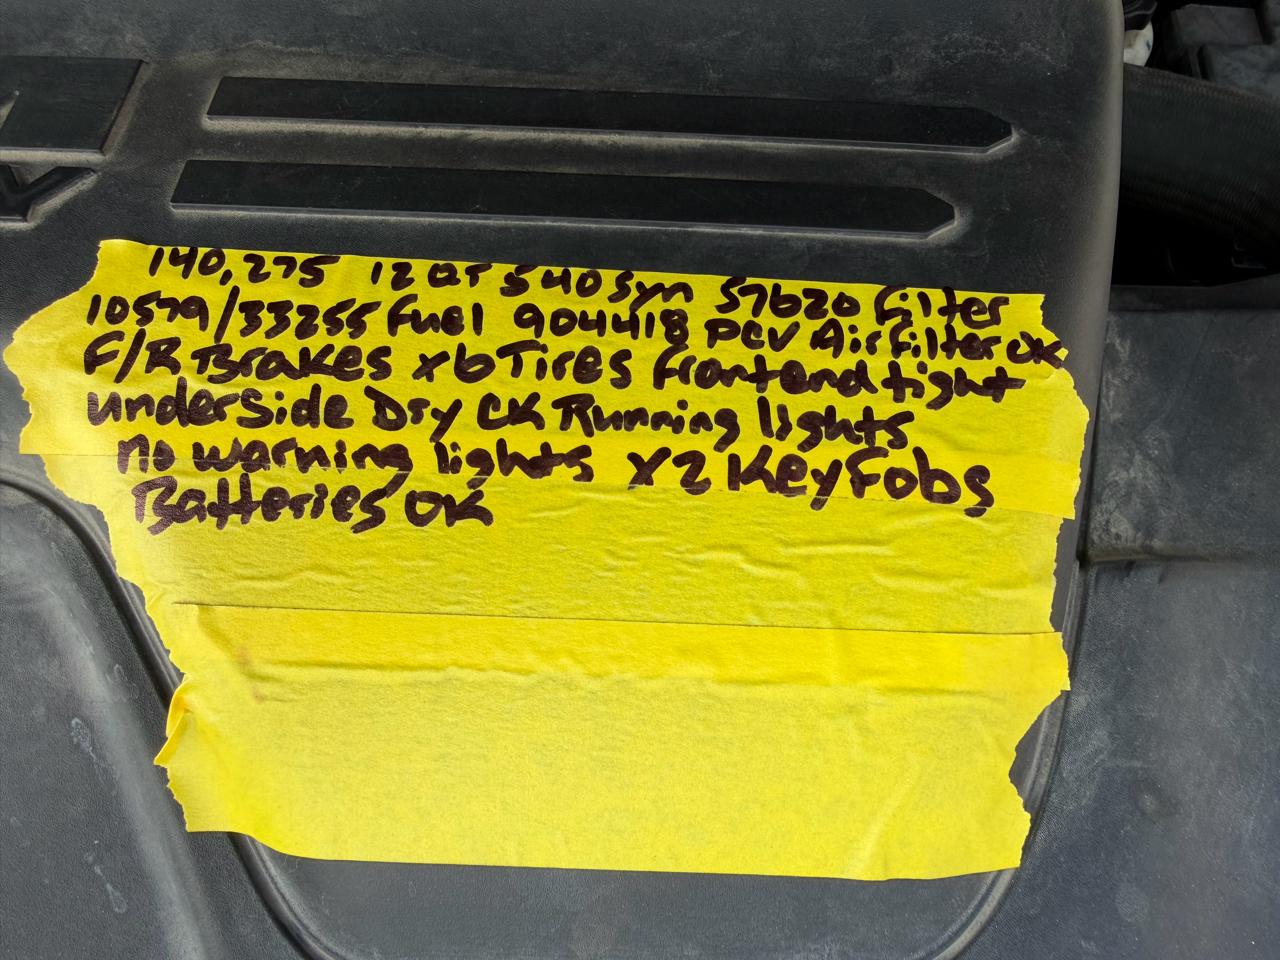 140,275 12 QT 540 syn 57620 filter
10579/33255 fuel 904418 PCV Air filter OK
F/R Brakes x6 Tires frontend tight
underside Dry CK Running lights
no warning lights X2 Key Fobs
Batteries OK